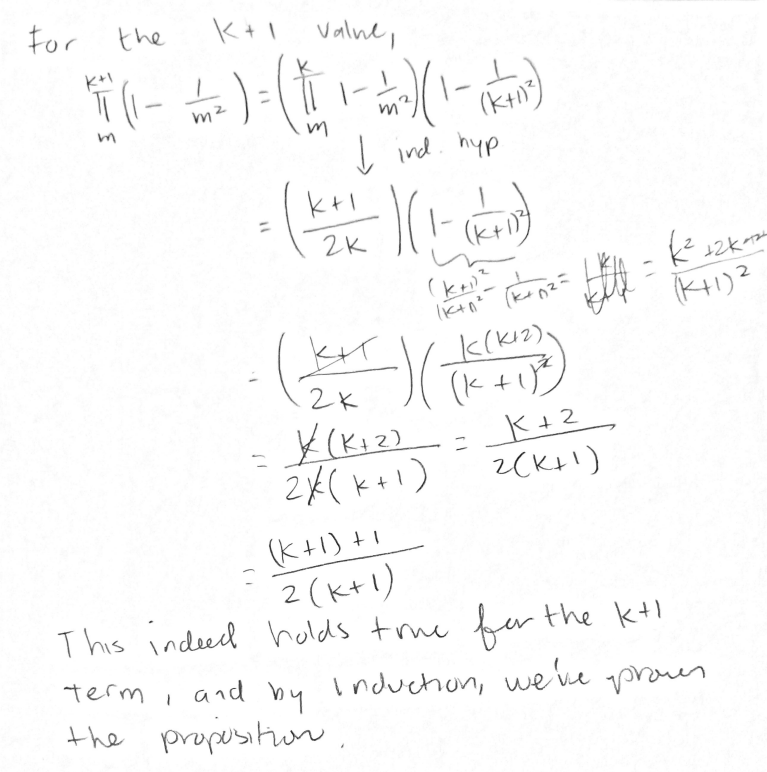 For the k+1 value,
k+1 ∏ m (1 - 1/m²) = (k ∏ m 1 - 1/m²)(1 - 1/(k+1)²)
↓ ind. hyp
= (k+1/2k)(1 - 1/(k+1)²)
(k+1)²/(k+1)² - 1/(k+1)² = = k²+2k/(k+1)²
= (k+1/2k)(k(k+2)/(k+1)²)
= k(k+2)/2k(k+1) = k+2/2(k+1)
= (k+1)+1/2(k+1)
This indeed holds true for the k+1
term, and by induction, we've proven
the proposition.